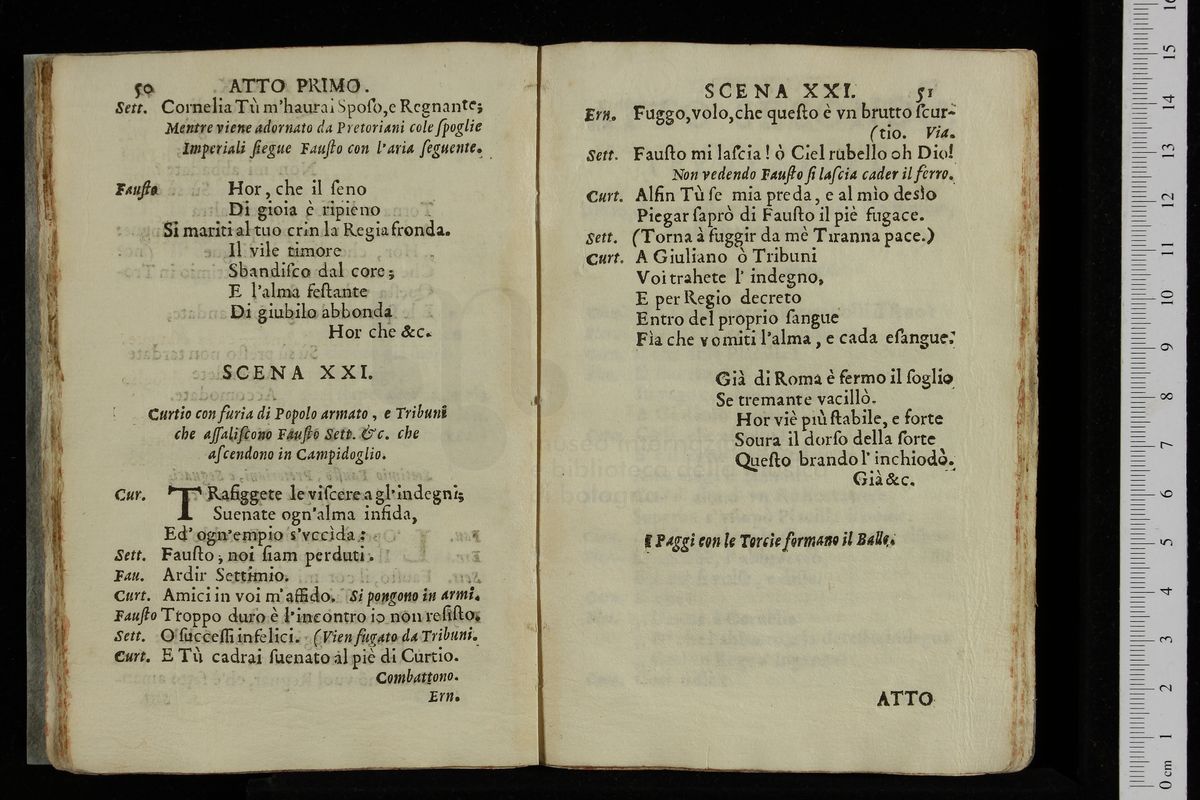 50 ATTO PRIMO.
Sett. Cornelia Tù m'haurai Spoſo, e Regnante;
Mentre viene adornato da Pretoriani cole ſpoglie
Imperiali ſiegue Fauſto con l'aria ſeguente.
Fauſto Hor, che il ſeno
Di gioia è ripieno
Si mariti al tuo crin la Regia fronda.
Il vile timore
Sbandiſco dal core;
E l'alma feſtante
Di giubilo abbonda
Hor che &c.
SCENA XXI.
Curtio con furia di Popolo armato, e Tribuni
che aſſaliſcono Fauſto Sett. &c. che
aſcendono in Campidoglio.
Cur. TRafiggete le viſcere a gl'indegni;
Suenate ogn'alma infida,
Ed' ogn'empio s'vccida:
Sett. Fauſto; noi ſiam perduti.
Fau. Ardir Settimio.
Curt. Amici in voi m'affido. Si pongono in armi.
Fauſto Troppo duro è l'incontro io non reſiſto.
Sett. O ſucceſſi infelici. (Vien fugato da Tribuni.
Curt. E Tù cadrai ſuenato al piè di Curtio.
Combattono.
Ern.
SCENA XXI. 51
Ern. Fuggo, volo, che queſto è vn brutto ſcur-
(tio. Via.
Sett. Fauſto mi laſcia! ò Ciel rubello oh Dio!
Non vedendo Fauſto ſi laſcia cader il ferro.
Curt. Alfin Tù ſe mia preda, e al mìo desìo
Piegar ſaprò di Fauſto il piè fugace.
Sett. (Torna à fuggir da mè Tiranna pace.)
Curt. A Giuliano ò Tribuni
Voi trahete l' indegno,
E per Regio decreto
Entro del proprio ſangue
Fìa che vomiti l'alma, e cada eſangue.
Già di Roma è fermo il ſoglio
Se tremante vacillò.
Hor viè più ſtabile, e forte
Soura il dorſo della ſorte
Queſto brando l' inchiodò.
Già &c.
I Paggi con le Torcie formano il Ballo.
ATTO
museo internazionale
e biblioteca della
di bologna
0 cm 1 2 3 4 5 6 7 8 9 10 11 12 13 14 15 16